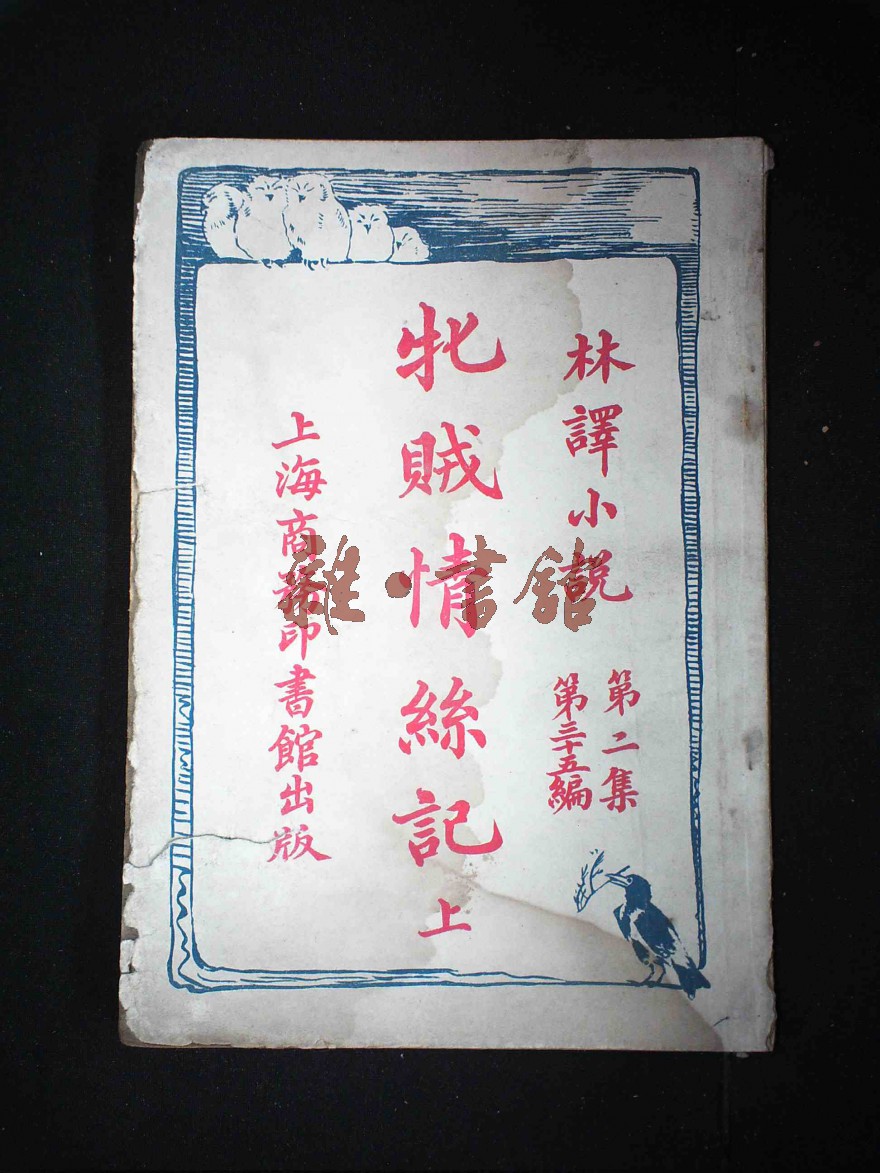 林譯小説
第二集
第三十五編
牝賊情絲記 上
上海商務印書館出版
雜·書館